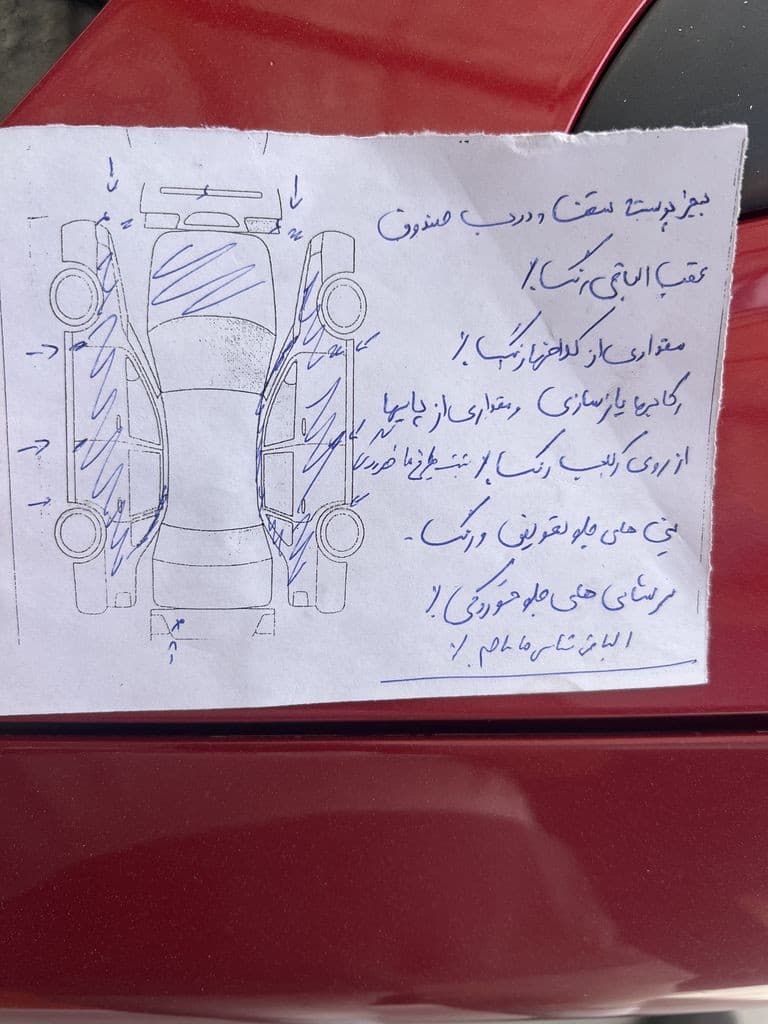 بجز پوسته سقف و درب صندوق
عقب الباقی رنگ ٪
مقداری از گلداخلها رنگ ٪
رکابها بازسازی و مقداری از پایها
از روی رکاب رنگ ٪
سینی های جلو تعویض و رنگ -
سرشاسی های جلو خوردگی ٪
الباقی شاسی ها سالم ٪